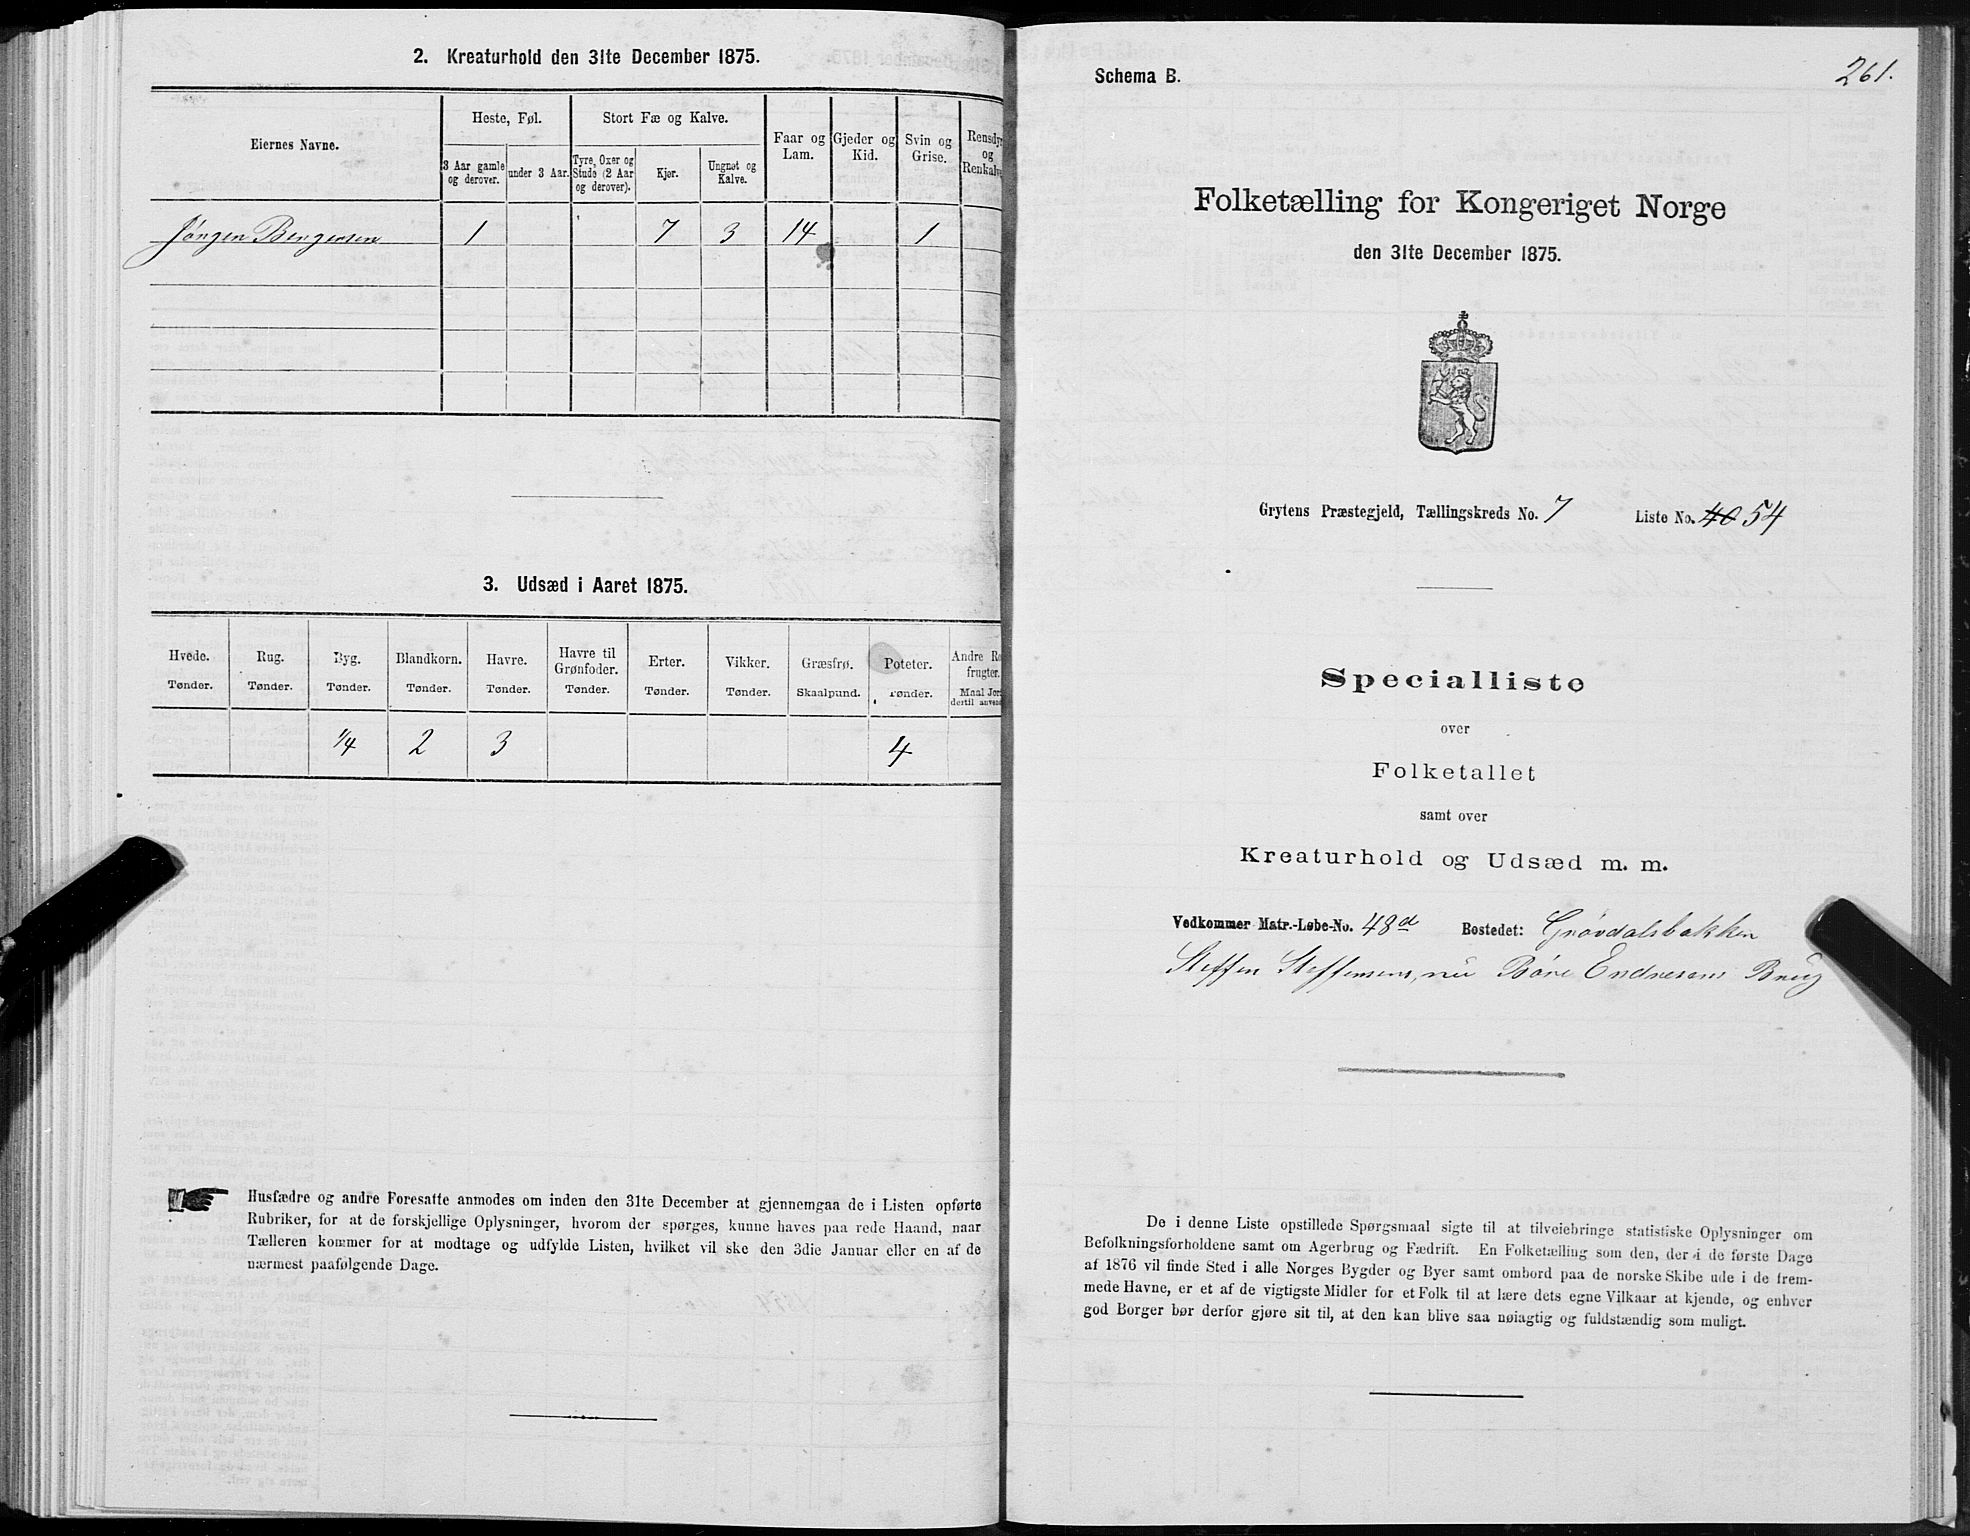 2. Kreaturhold den 31te December 1875.
Eiernes Navne.
Heste, Føl.
Stort Fæ og Kalve.
Faar og Lam.
Gjeder og Kid.
Svin og Grise.
Rensdyr og Renkalve
3 Aar gamle og derover.
under 3 Aar.
Tyre, Oxer og Stude (2 Aar og derover).
Kjør.
Ungnøt og Kalve.
Jørgen Bengersen 1 7 3 14 1
3. Udsæd i Aaret 1875.
Hvede. Rug. Byg. Blandkorn. Havre. Havre til Grønfoder. Erter. Vikker. Græsfrø. Poteter. Andre Ro frugter.
Tønder. Tønder. Tønder. Tønder. Tønder. Tønder. Tønder. Tønder. Skaalpund. Tønder. Maal Jor dertil anvend
1/4 2 3 4
Husfædre og andre Foresatte anmodes om inden den 31te December at gjennemgaa de i Listen opførte
Rubriker, for at de forskjellige Oplysninger, hvorom der spørges, kunne haves paa rede Haand, naar
Tælleren kommer for at modtage og udfylde Listen, hvilket vil ske den 3die Januar eller en af de
nærmest paafølgende Dage.
261.
Schema B.
Folketælling for Kongeriget Norge
den 31te December 1875.
Grytens Præstegjeld, Tællingskreds No. 7 Liste No. 40 54
Specialliste
over
Folketallet
samt over
Kreaturhold og Udsæd m. m.
Vedkommer Matr.-Løbe-No. 48d Bostedet: Grøvdalsbakken
Steffen Steffensens, nu Børe Endresens Brug
De i denne Liste opstillede Spørgsmaal sigte til at tilveiebringe statistiske Oplysninger om
Befolkningsforholdene samt om Agerbrug og Fædrift. En Folketælling som den, der i de første Dage
af 1876 vil finde Sted i alle Norges Bygder og Byer samt ombord paa de norske Skibe ude i de frem-
mede Havne, er et af de vigtigste Midler for et Folk til at lære dets egne Vilkaar at kjende, og enhver
god Borger bør derfor gjøre sit til, at den kan blive saa nøiagtig og fuldstændig som muligt.